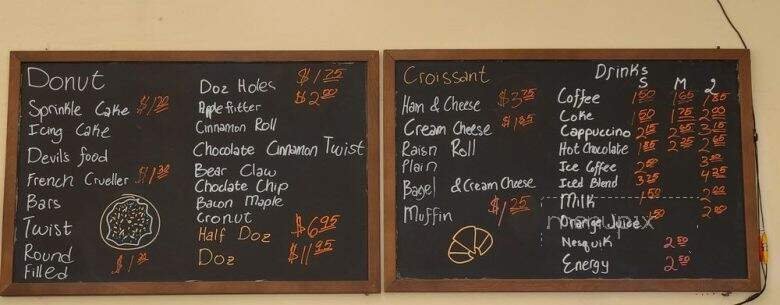 Donut
Sprinkle Cake
Icing Cake
Devils food
French Crueller
Bars
Twist
Round
Filled
Doz Holes $1.75
Apple fritter $2.00
Cinnamon Roll
Chocolate Cinnamon Twist
Bear Claw
Choclate Chip
Bacon Maple
Cronut
Half Doz $6.95
Doz $11.95
Croissant
Ham & Cheese $3.75
Cream Cheese
Raisn Roll
Plain
Bagel & Cream Cheese
Muffin $1.25
Drinks
S M
Coffee 1.50
Coke 1.50 1.75 2.00
Cappuccino
Hot Chocolate
Ice Coffee
Iced Blend
Milk 1.50 2.00
Orange Juice
Nesquik 2.50
Energy 2.50
menupix